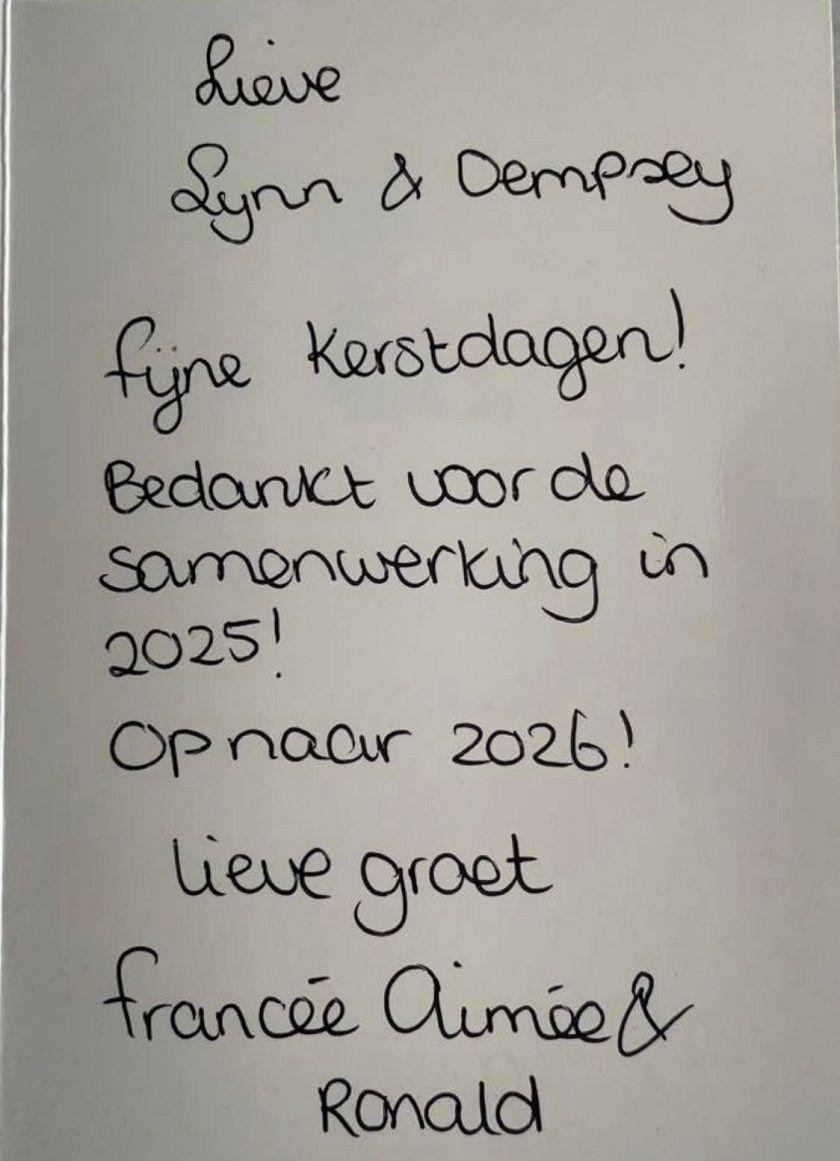 Lieve
Lynn & Dempsey
fijne Kerstdagen!
Bedankt voor de
samenwerking in
2025!
Op naar 2026!
lieve groet
francée Aimée &
Ronald